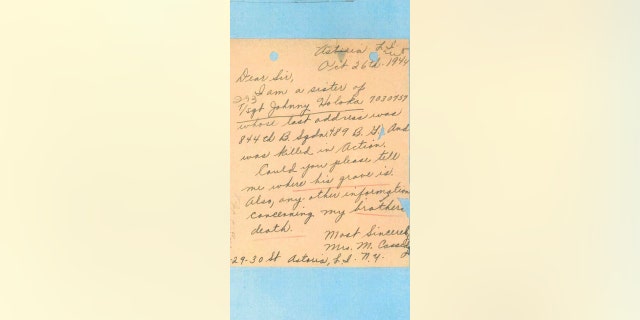 Astoria, L.I.
Oct 26th. 1944
Dear Sir,
I am a sister of
T/sgt Johnny Holoka 7030757
whose last address was
844th B. Sqdn 489 B. G. And
was killed in Action.
Could you please tell
me where his grave is.
Also, any other information
concerning my brothers
death.
Most Sincerely
Mrs. M.
29-30 St Astoria, L.I. N.Y.